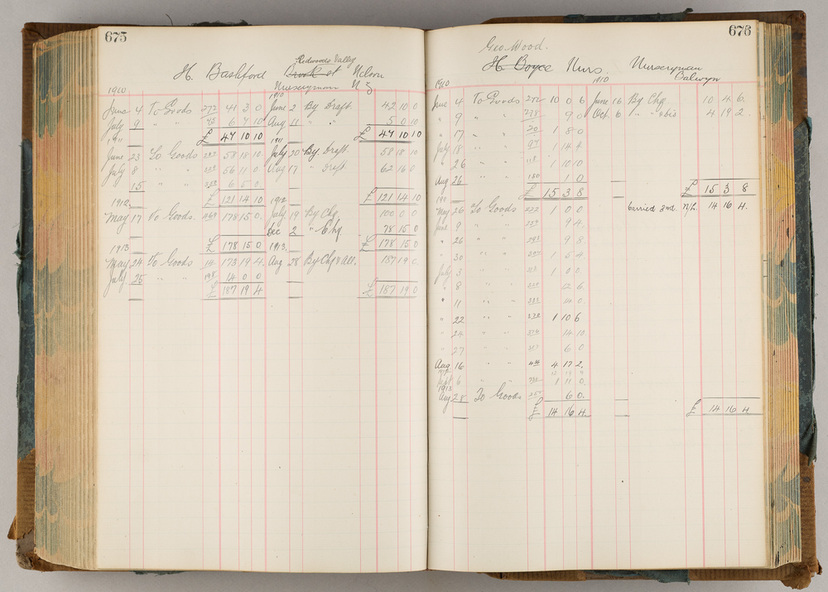 675
Redwoods Valley
H. Bashford Nelson
1910 Nurseryman N Z
June 4 To Goods 272 44 3 0 June 2 By Draft 42 10 0
July 9 " " 6 7 10 Aug 11 " " 5 0 10
£ 47 10 10 £ 47 10 10
June 23 To Goods 58 18 10 July 20 By Draft 58 18 10
July 8 " " 56 11 0 Aug 17 " Draft 62 16 0
15 " " 6 5 0
1912 £ 121 14 10 1912 £ 121 14 10
May 17 To Goods 178 15 0 July 19 By Chq 100 0 0
Dec 2 " Chq 78 15 0
1913 £ 178 15 0 1913 £ 178 15 0
May 24 To Goods 173 19 4 Aug 28 By Chq & all.
July 25 " " 14 0 0
£ 187 19 4 £ 187 19 0
676
Geo Wood.
H Boyce Nurs Nurseryman
1910 1910 Balwyn
June 4 To Goods 272 10 0 6 June 16 By Chq 10 4 6
" 9 " " 9 Oct 6 " " 4 19 2
" 17 " " 1 8 0
July 18 " " 1 14
" 26 " " 1 10 10
Aug 26 " " 1 0
1911 £ 15 3 8 £ 15 3 8
May 26 To Goods 1 0 0 Carried 2nd N/L 14 16 4
June 9 " " 9 4
" 26 " " 9 8
" 30 " " 1 5 4
July 3 " " 1 0 0
" 8 " " 12 6
" 11 " "
" 22 " " 232 1 10 6
" 24 " " 14 10
" 27 " " 6 0
Aug 16 " " 4 17 2
Sept 6 " " 1 11 0
1912
Aug 28 To Goods 6 0
£ 14 16 4 £ 14 16 4